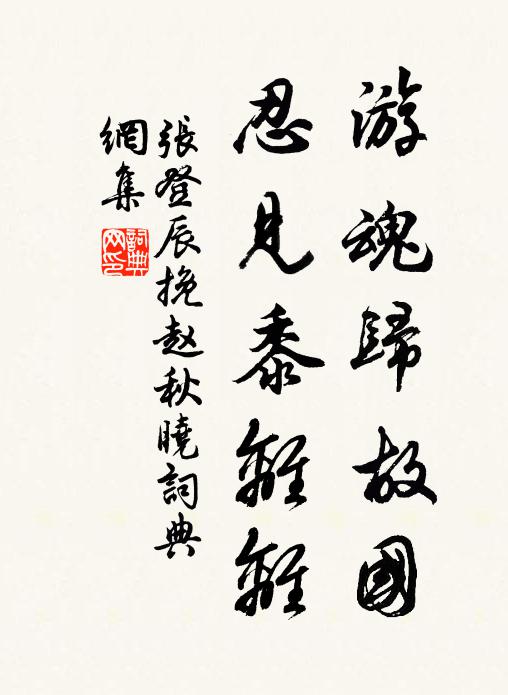 游魂歸故國
忍見黍離離
張登辰挽赵秋曉詞典
網集
詞典
网印